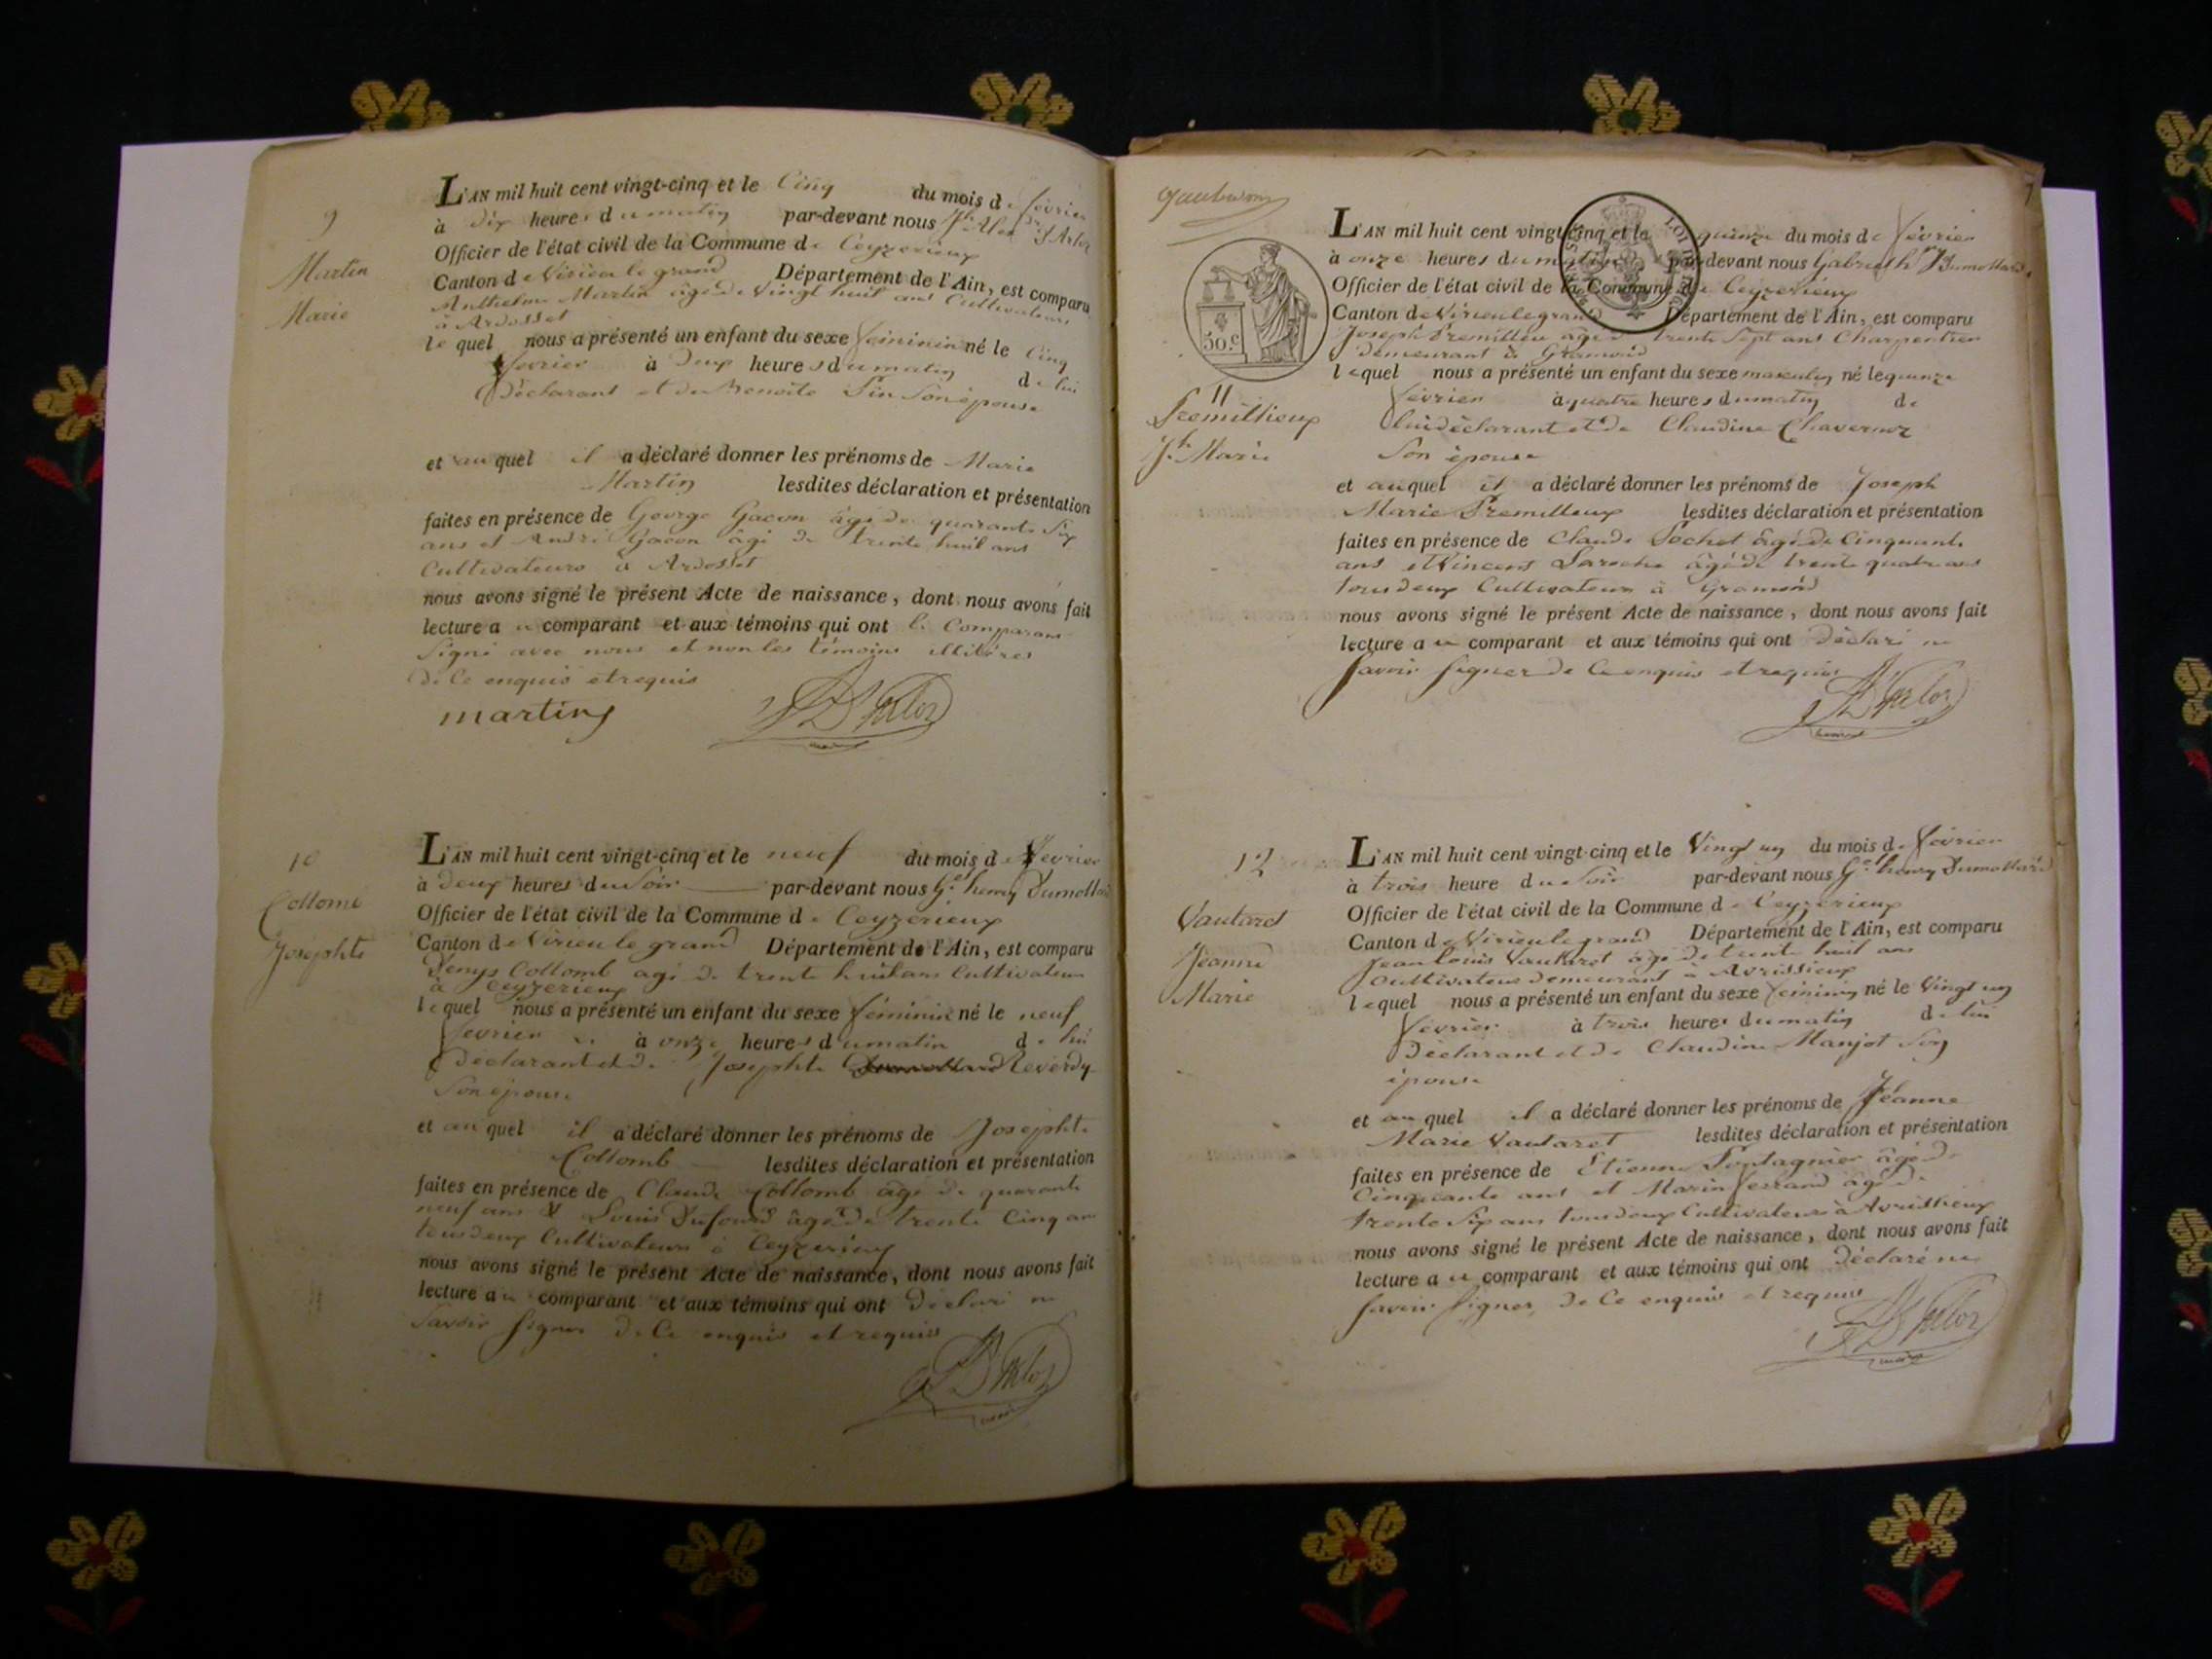 9
Martin
Marie
L'AN mil huit cent vingt-cinq et le Cinq du mois de février
à dix heures du matin par-devant nous
Officier de l'état civil de la Commune de Ceyzerieux
Canton de Virieu le grand Département de l'Ain, est comparu
Anthelme Martin âgé de Vingt huit ans Cultivateur
à Ardosset
lequel nous a présenté un enfant du sexe féminin né le Cinq
fevrier à Deux heures du matin de lui
Déclarant et de Benoîte Pin Son épouse
et auquel il a déclaré donner les prénoms de Marie
Martin lesdites déclaration et présentation
faites en présence de George Gacon âgé de quarante Six
ans et André Gacon agé de trente huit ans
Cultivateurs à Ardosset
nous avons signé le présent Acte de naissance, dont nous avons fait
lecture au comparant et aux témoins qui ont le Comparant
Signé avec nous et non les témoins illitérés
de Ce enquis et requis
martin
10
Collomb
Josephte
L'AN mil huit cent vingt-cinq et le neuf du mois de fevrier
à Deux heures du Soir par-devant nous Gel henry Dumollard
Officier de l'état civil de la Commune de Ceyzerieux
Canton de Virieu le grand Département de l'Ain, est comparu
Denys Collomb agé de trente huit ans Cultivateur
à Ceyzerieux
lequel nous a présenté un enfant du sexe féminin né le neuf
fevrier à onze heures du matin de lui
Déclarant et de Josephte Dumollard Reverdy
Son épouse
et auquel il a déclaré donner les prénoms de Josephte
Collomb lesdites déclaration et présentation
faites en présence de Claude Collomb agé de quarante
neuf ans & Louis Dufour âgé de trente Cinq ans
tous deux Cultivateurs à Ceyzerieux
nous avons signé le présent Acte de naissance, dont nous avons fait
lecture au comparant et aux témoins qui ont déclaré ne
Savoir signer de Ce enquis et requis
7
50 c
11
Premillieux
Jh Marie
L'AN mil huit cent vingt-cinq et le quinze du mois de février
à onze heures du matin par-devant nous Gabriel h Dumollard
Officier de l'état civil de la Commune de Ceyzerieux
Canton de Virieu le grand Département de l'Ain, est comparu
Joseph Premillieu âgé de trente Sept ans Charpentier
demeurant à Gramond
lequel nous a présenté un enfant du sexe masculin né le quinze
février à quatre heures du matin de
lui déclarant et de Claudine Chavernoz
Son épouse
et auquel il a déclaré donner les prénoms de Joseph
Marie Premillieux lesdites déclaration et présentation
faites en présence de Claude Pochet âgé de Cinquante
ans et Vincent Laroche âgé de trente quatre ans
tous deux Cultivateurs à Gramond
nous avons signé le présent Acte de naissance, dont nous avons fait
lecture au comparant et aux témoins qui ont déclaré ne
savoir signer de Ce enquis et requis
12
Vautaret
Jeanne
Marie
L'AN mil huit cent vingt-cinq et le Vingt un du mois de février
à trois heure du Soir par-devant nous Gel henry Dumollard
Officier de l'état civil de la Commune de Ceyzerieux
Canton de Virieu le grand Département de l'Ain, est comparu
Jean Louis Vautaret âgé de trente huit ans
Cultivateur demeurant à Avrissieux
lequel nous a présenté un enfant du sexe féminin né le Vingt un
février à trois heures du matin de lui
Déclarant et de Claudine Manjot Son
épouse
et auquel il a déclaré donner les prénoms de Jeanne
Marie Vautaret lesdites déclaration et présentation
faites en présence de Etienne Pontagnier âgé de
Cinquante ans et Marin ferrand âgé de
trente Six ans tous deux Cultivateurs à Avrissieux
nous avons signé le présent Acte de naissance, dont nous avons fait
lecture au comparant et aux témoins qui ont Déclaré ne
savoir signer de Ce enquis et requis